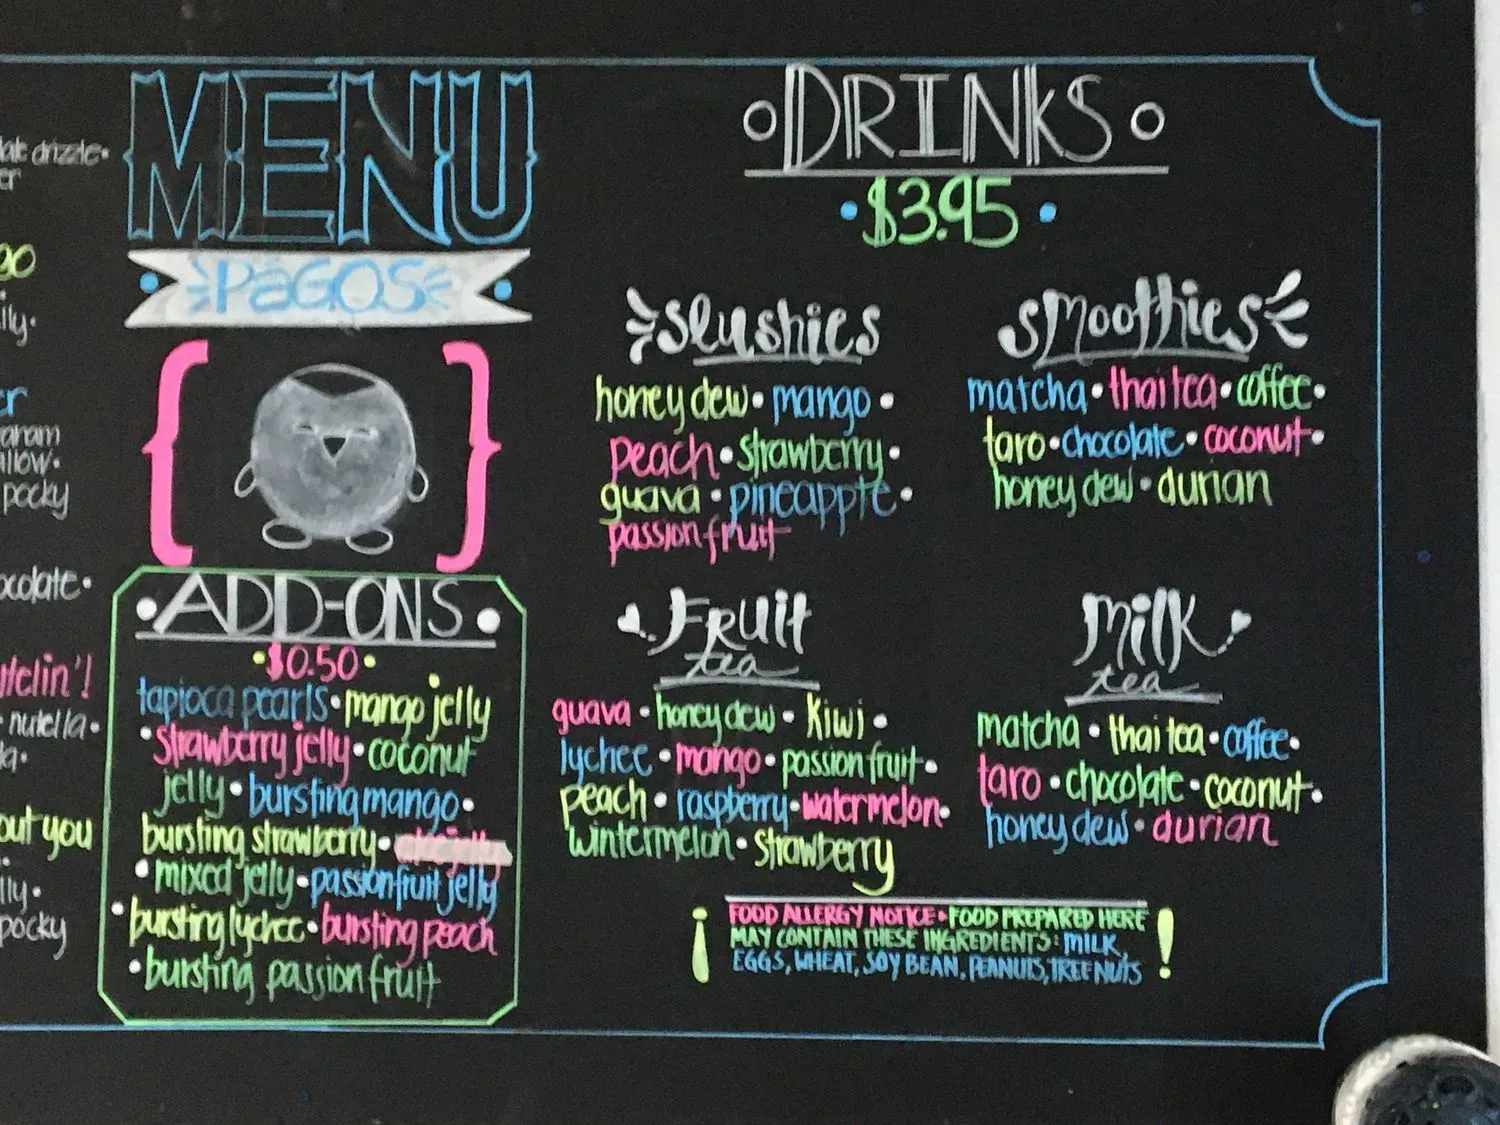 drizzle•
MENU
PAGOS
pocky
nutella•
out you
pocky
ADD-ONS
$0.50
tapioca pearls • mango jelly
• strawberry jelly • coconut
jelly • bursting mango •
bursting strawberry •
• mixed jelly • passionfruit jelly
• bursting lychee • bursting peach
• bursting passion fruit
DRINKS
$3.95
Slushies
honey dew • mango •
peach • strawberry •
guava • pineapple •
passion fruit
smoothies
matcha • thai tea • coffee •
taro • chocolate • coconut •
honey dew • durian
FRUIT
tea
guava • honey dew • kiwi •
lychee • mango • passion fruit •
peach • raspberry • watermelon •
wintermelon • strawberry
Milk
tea
matcha • thai tea • coffee •
taro • chocolate • coconut •
honey dew • durian
FOOD ALLERGY NOTICE • FOOD PREPARED HERE
MAY CONTAIN THESE INGREDIENTS: MILK,
EGGS, WHEAT, SOY BEAN, PEANUTS, TREE NUTS